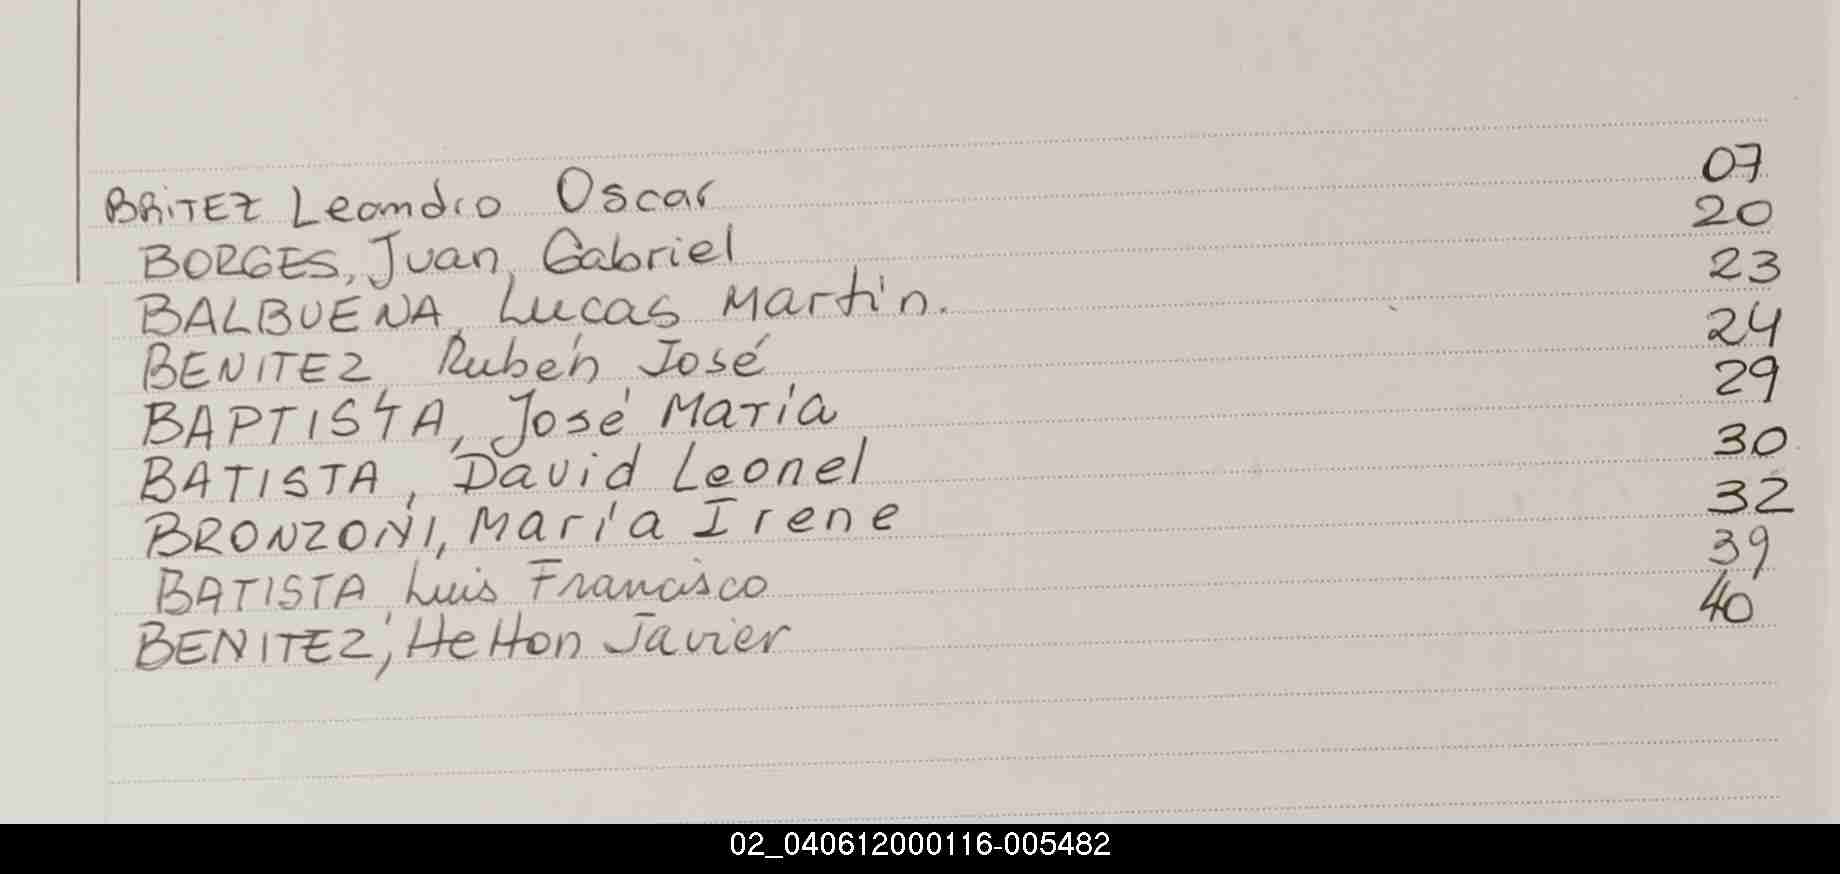 BRITEZ Leandro Oscar 07
BORGES, Juan, Gabriel 20
BALBUENA, Lucas Martín. 23
BENITEZ, Rubén José 24
BAPTISTA, José María 29
BATISTA, David Leonel 30
BRONZONI, María Irene 32
BATISTA, Luis Francisco 39
BENITEZ, Helton Javier 40
02_040612000116-005482